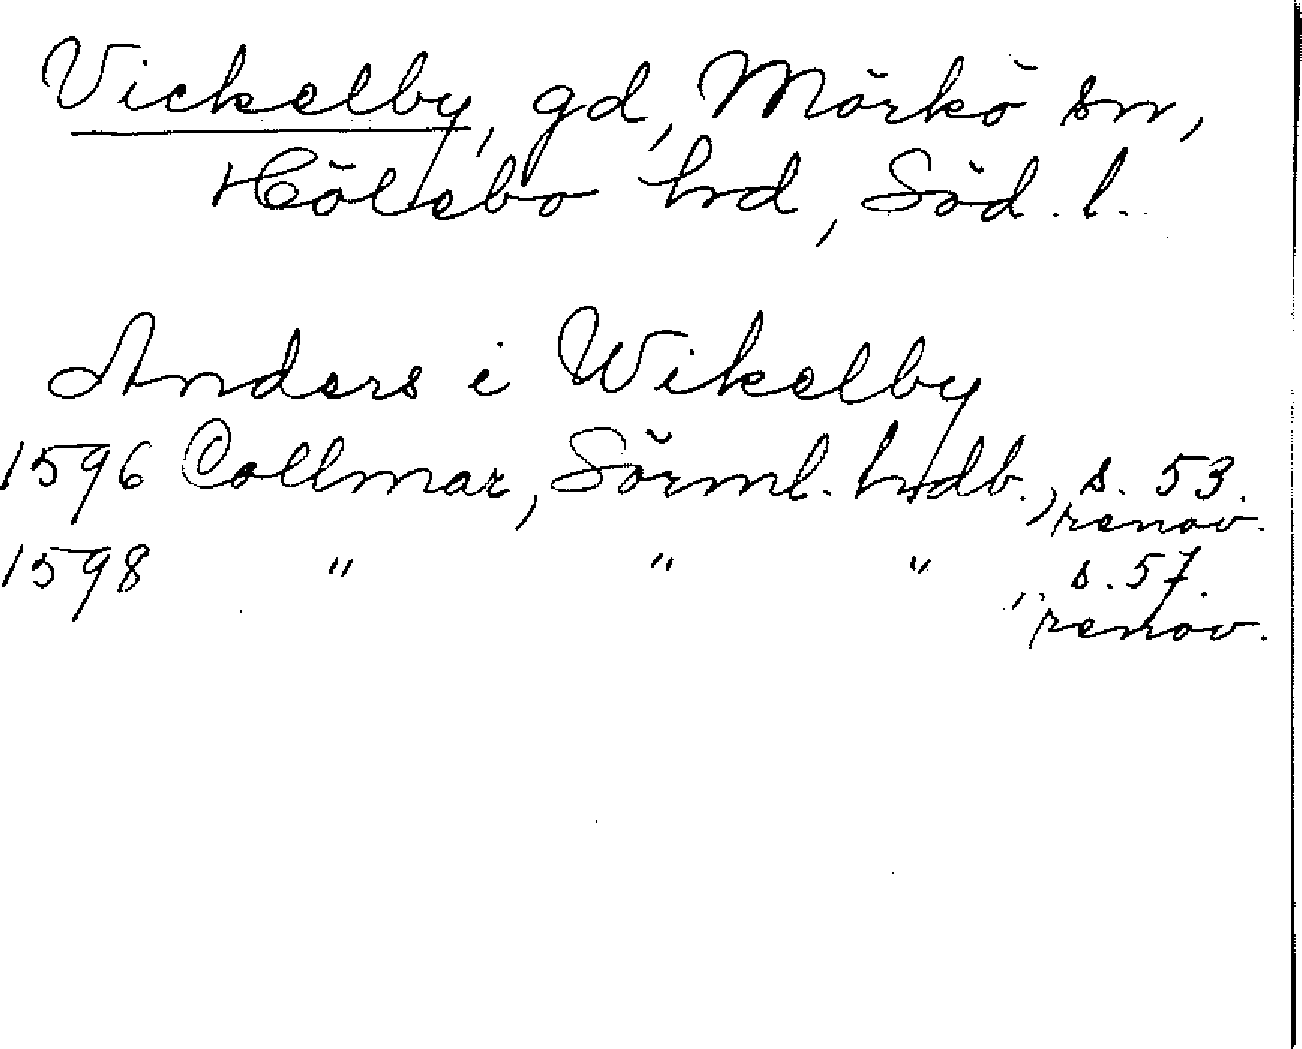 Vickelby, gd, Mörkö sn,
Hölebo hrd, Söd. l.
Anders i Wikelby
1596 Collmar, Sörml. hrdb., s. 53.
renov.
1598 " " " , s. 57.
renov.